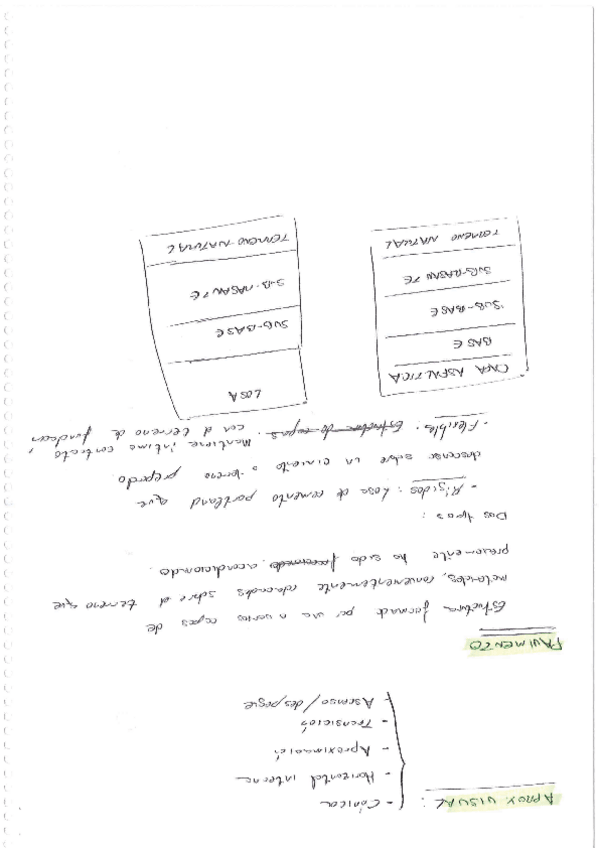 APROX VISUAL :
- Cónica
- Horizontal interna
- Aproximació
- Transición
- Ascenso / despegue
PAVIMENTO
Estructura formada por una o varias capas de
materiales, convenientemente colocadas sobre el terreno que
previamente ha sido acondicionado.
Dos tipos :
- Rígidos : Losa de cemento portland que
descansa sobre un cimiento o terreno preparado
- Flexibles. Estructura de capas. Mantiene íntimo contacto
con el terreno de fundación
CAPA ASFALTICA
BASE
SUB-BASE
SUB-RASANTE
TERRENO NATURAL
LOSA
SUB-BASE
SUB-RASANTE
TERRENO NATURAL